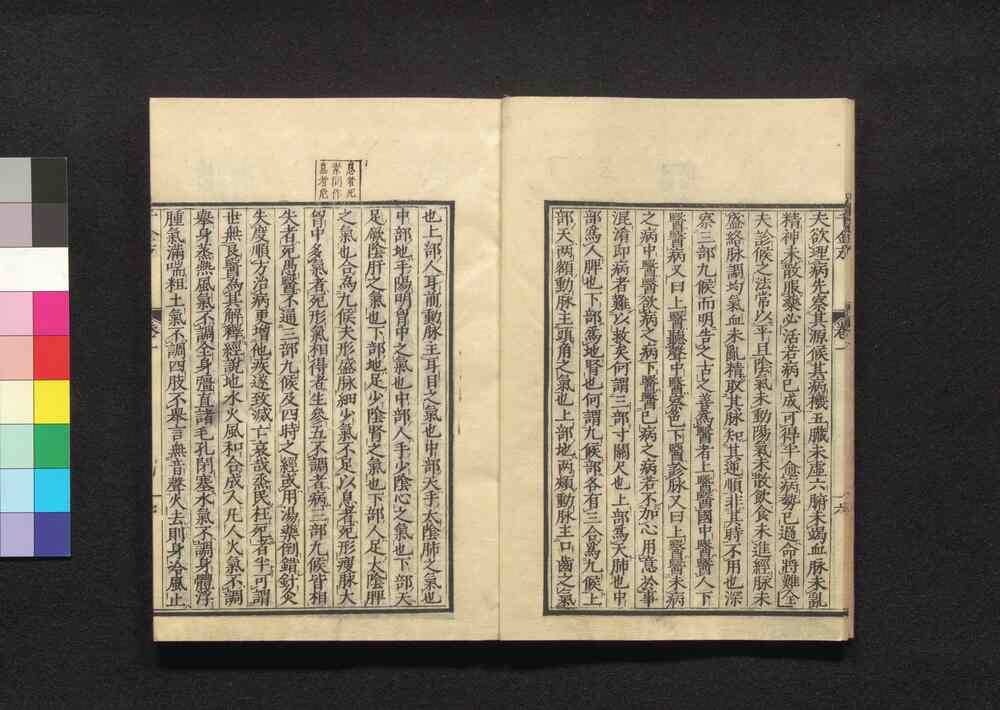 夫欲理病先察其源候其病機五臟未虚六腑未竭血脉未亂
精神未散服藥必活若病已成可得半愈病勢已過命將難全
夫診候之法常以平旦陰氣未動陽氣未散飲食未進經脉未
盛絡脉調均氣血未亂精取其脉知其逆順非其時不用也深
察三部九候而明告之古之善爲醫者上醫醫國中醫醫人下
醫醫病又曰上醫聽聲中醫察色下醫診脉又曰上醫醫未病
之病中醫醫欲病之病下醫醫已病之病若不加心用意於事
混淆即病者難以救矣何謂三部寸關尺也上部爲天肺也中
部爲人脾也下部爲地腎也何謂九候部各有三合爲九候上
部天两額動脉主頭角之氣也上部地两頰動脉主口齒之氣
千金方
卷一
十六
息者死
素問作
息者危
也上部人耳前動脉主耳目之氣也中部天手太陰肺之氣也
中部地手陽明胷中之氣也中部人手少陰心之氣也下部天
足厥陰肝之氣也下部地足少陰腎之氣也下部人足太陰脾
之氣也合爲九候夫形盛脉細少氣不足以息者死形瘦脉大
胷中多氣者死形氣相得者生參五不調者病三部九候皆相
失者死愚醫不通三部九候及四時之經或用湯藥倒錯針灸
失度順方治病更增他疾遂致滅亡哀哉烝民枉死者半可謂
世無良醫爲其解釋經說地水火風和合成人凡人火氣不調
舉身蒸熱風氣不調全身殭直諸毛孔閉塞水氣不調身體浮
腫氣滿喘粗土氣不調四肢不舉言無音聲火去則身冷風止